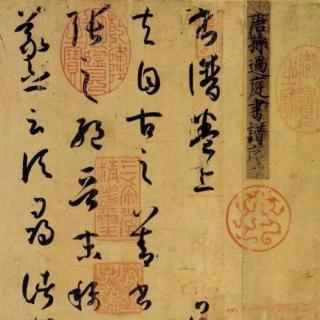 唐孫過庭書譜序
書譜卷上
夫自古之善書
張之絕晉末稱
羲之云頃尋諸